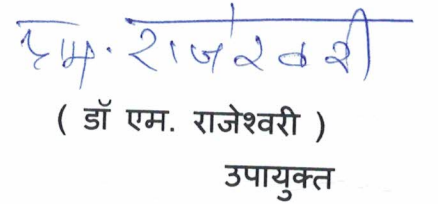 एम. राजेश्वरी
( डॉ एम. राजेश्वरी )
उपायुक्त